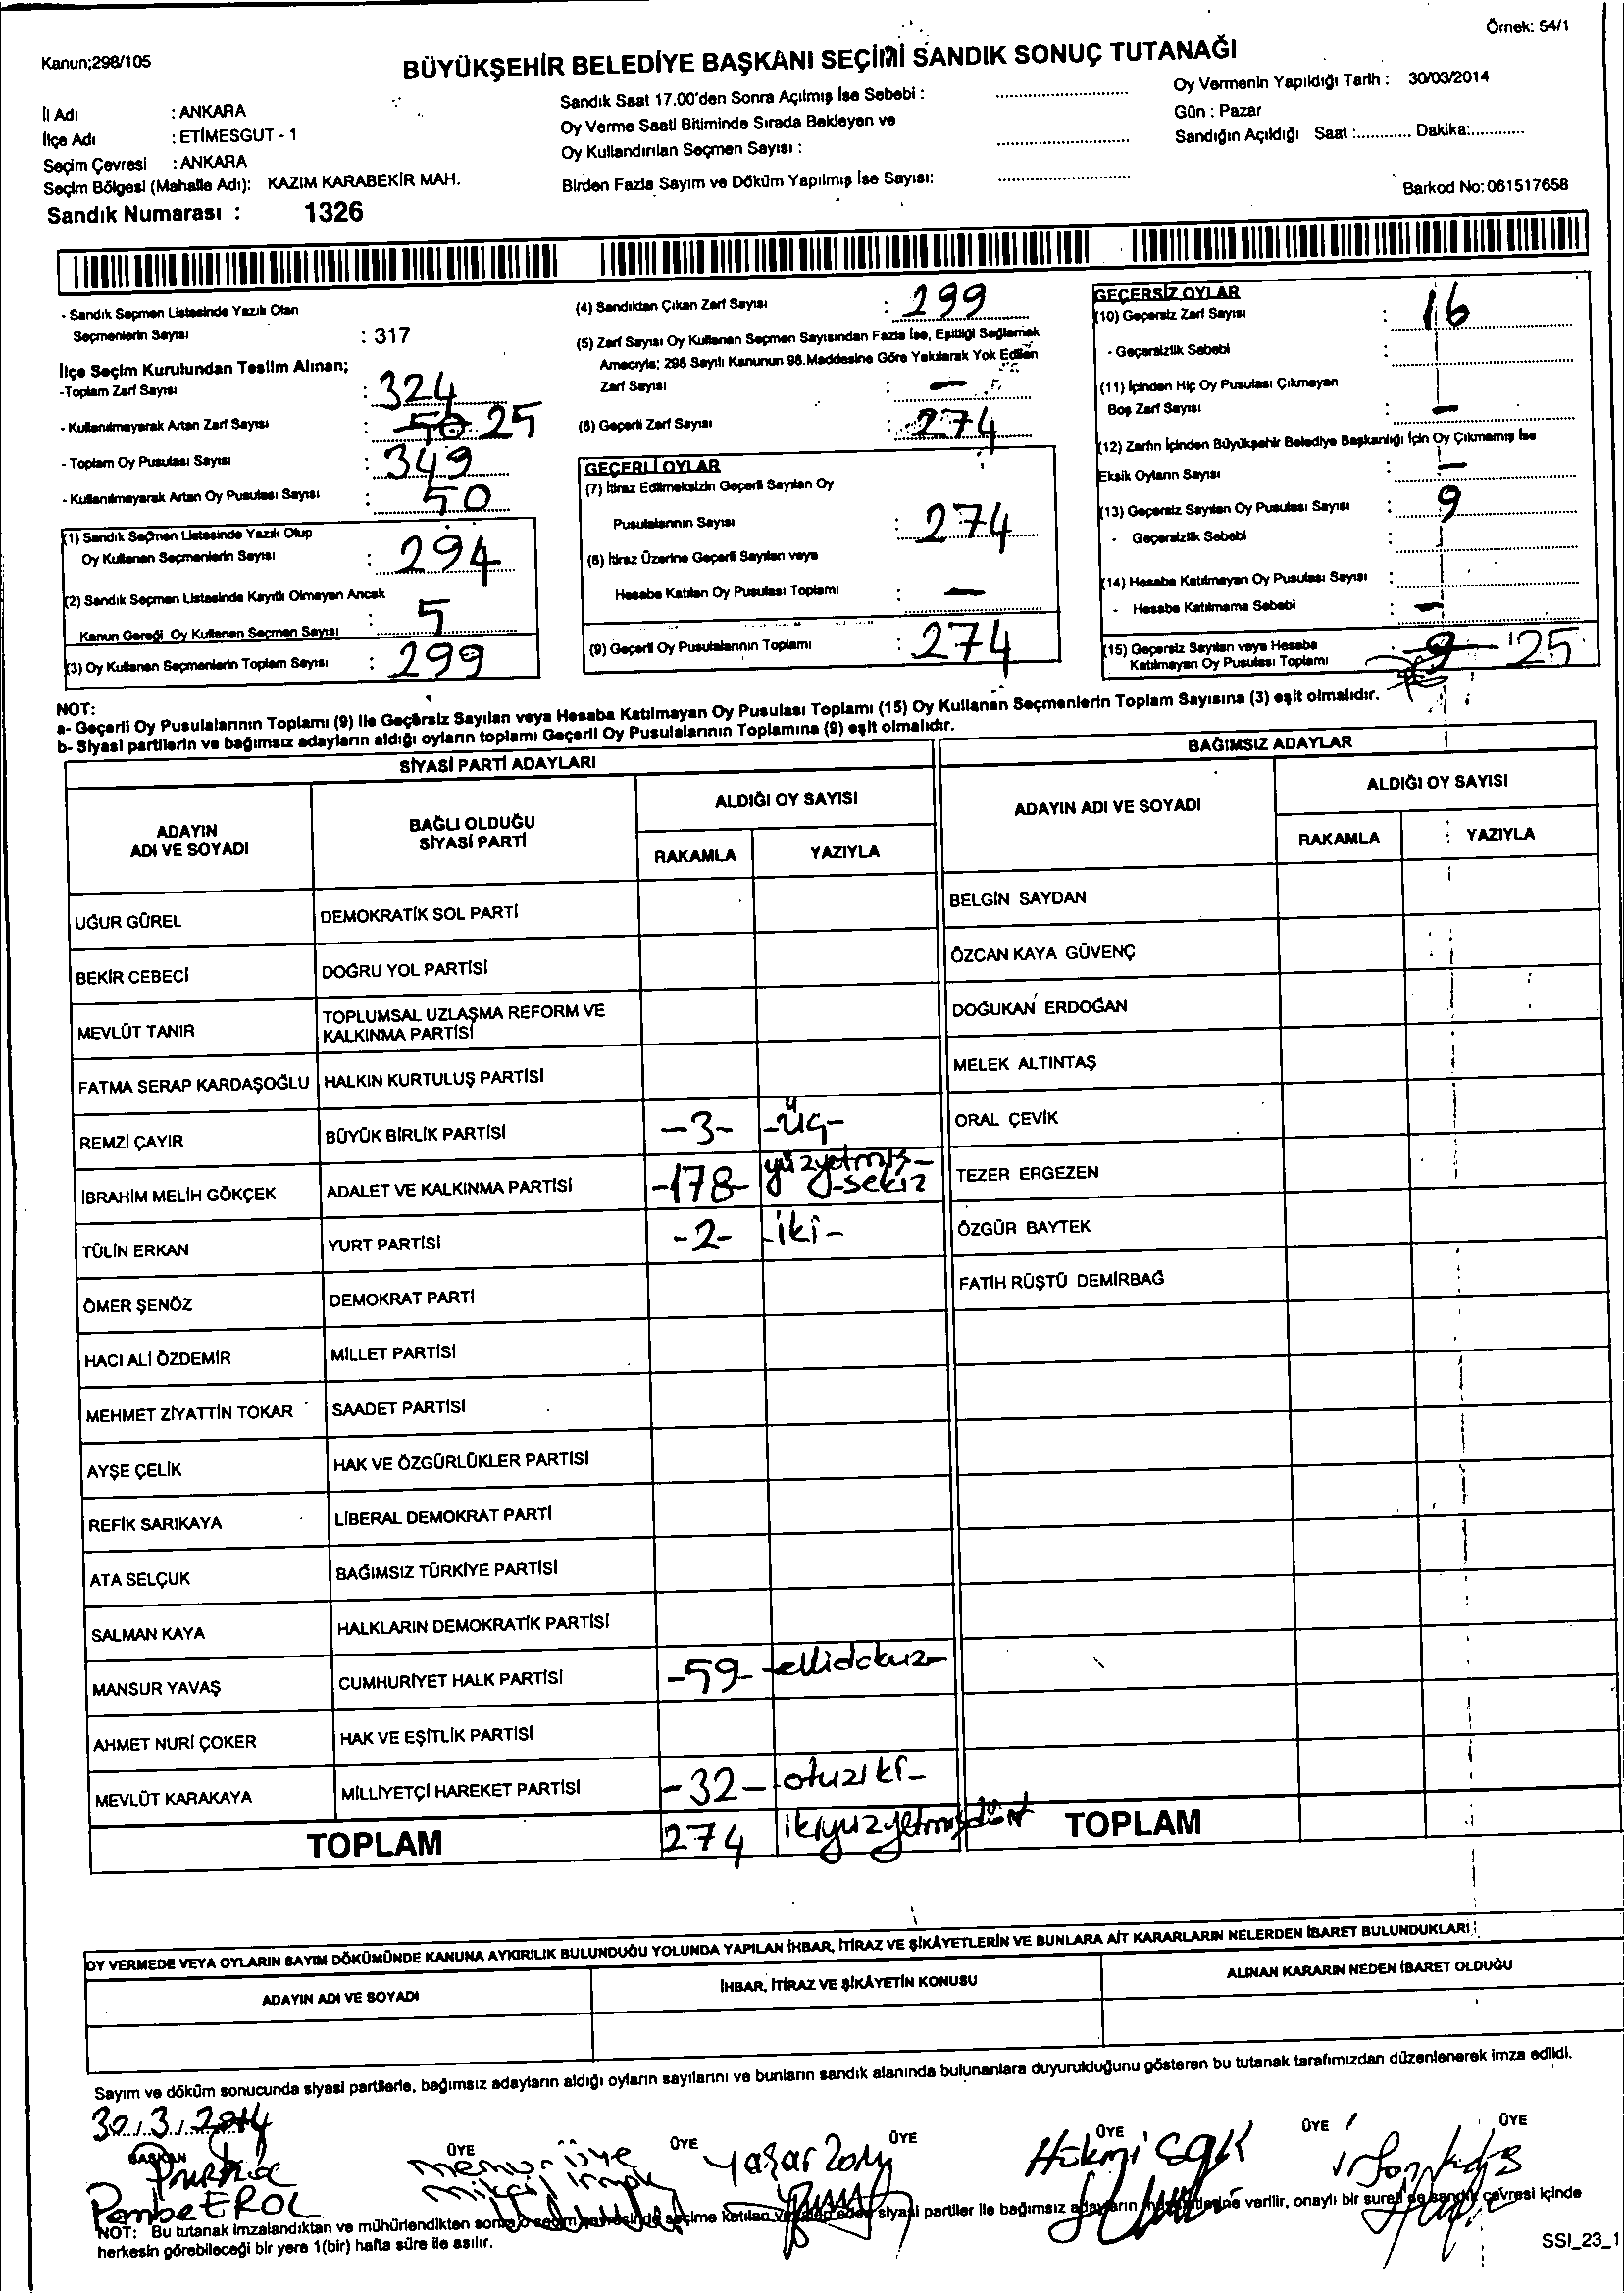 Örnek: 54/1
Kanun;298/105
BÜYÜKŞEHİR BELEDİYE BAŞKANI SEÇİMİ SANDIK SONUÇ TUTANAĞI
İl Adı : ANKARA
İlçe Adı : ETİMESGUT - 1
Seçim Çevresi : ANKARA
Seçim Bölgesi (Mahalle Adı): KAZIM KARABEKİR MAH.
Sandık Numarası : 1326
Sandık Saat 17.00'den Sonra Açılmış İse Sebebi :
Oy Verme Saati Bitiminde Sırada Bekleyen ve
Oy Kullandırılan Seçmen Sayısı :
Birden Fazla Sayım ve Döküm Yapılmış İse Sayısı:
Oy Vermenin Yapıldığı Tarih : 30/03/2014
Gün : Pazar
Sandığın Açıldığı Saat :............ Dakika:............
Barkod No: 061517658
- Sandık Seçmen Listesinde Yazılı Olan
Seçmenlerin Sayısı : 317
İlçe Seçim Kurulundan Teslim Alınan;
-Toplam Zarf Sayısı : 324
- Kullanılmayarak Artan Zarf Sayısı : 50 25
- Toplam Oy Pusulası Sayısı : 349
- Kullanılmayarak Artan Oy Pusulası Sayısı : 50
(1) Sandık Seçmen Listesinde Yazılı Olup
Oy Kullanan Seçmenlerin Sayısı : 294
(2) Sandık Seçmen Listesinde Kayıtlı Olmayan Ancak
Kanun Gereği Oy Kullanan Seçmen Sayısı : 5
(3) Oy Kullanan Seçmenlerin Toplam Sayısı : 299
(4) Sandıktan Çıkan Zarf Sayısı : 299
(5) Zarf Sayısı Oy Kullanan Seçmen Sayısından Fazla İse, Eşitliği Sağlamak
Amacıyla; 298 Sayılı Kanunun 98.Maddesine Göre Yakılarak Yok Edilen
Zarf Sayısı : —
(6) Geçerli Zarf Sayısı : 274
GEÇERLİ OYLAR
(7) İtiraz Edilmeksizin Geçerli Sayılan Oy
Pusulalarının Sayısı : 274
(8) İtiraz Üzerine Geçerli Sayılan veya
Hesaba Katılan Oy Pusulası Toplamı : —
(9) Geçerli Oy Pusulalarının Toplamı : 274
GEÇERSİZ OYLAR
(10) Geçersiz Zarf Sayısı : 16
- Geçersizlik Sebebi :
(11) İçinden Hiç Oy Pusulası Çıkmayan
Boş Zarf Sayısı : —
(12) Zarfın İçinden Büyükşehir Belediye Başkanlığı İçin Oy Çıkmamış İse
Eksik Oyların Sayısı : —
(13) Geçersiz Sayılan Oy Pusulası Sayısı : 9
- Geçersizlik Sebebi :
(14) Hesaba Katılmayan Oy Pusulası Sayısı :
- Hesaba Katılmama Sebebi : —
(15) Geçersiz Sayılan veya Hesaba
Katılmayan Oy Pusulası Toplamı : 9 25
NOT:
a- Geçerli Oy Pusulalarının Toplamı (9) ile Geçersiz Sayılan veya Hesaba Katılmayan Oy Pusulası Toplamı (15) Oy Kullanan Seçmenlerin Toplam Sayısına (3) eşit olmalıdır.
b- Siyasi partilerin ve bağımsız adayların aldığı oyların toplamı Geçerli Oy Pusulalarının Toplamına (9) eşit olmalıdır.
SİYASİ PARTİ ADAYLARI
ADAYIN ADI VE SOYADI
BAĞLI OLDUĞU SİYASİ PARTİ
ALDIĞI OY SAYISI
RAKAMLA YAZIYLA
UĞUR GÜREL DEMOKRATİK SOL PARTİ
BEKİR CEBECİ DOĞRU YOL PARTİSİ
MEVLÜT TANIR TOPLUMSAL UZLAŞMA REFORM VE KALKINMA PARTİSİ
FATMA SERAP KARDAŞOĞLU HALKIN KURTULUŞ PARTİSİ
REMZİ ÇAYIR BÜYÜK BİRLİK PARTİSİ -3- -üç-
İBRAHİM MELİH GÖKÇEK ADALET VE KALKINMA PARTİSİ -178- yüzyetmiş-sekiz
TÜLİN ERKAN YURT PARTİSİ -2- -iki-
ÖMER ŞENÖZ DEMOKRAT PARTİ
HACI ALİ ÖZDEMİR MİLLET PARTİSİ
MEHMET ZİYATTİN TOKAR SAADET PARTİSİ
AYŞE ÇELİK HAK VE ÖZGÜRLÜKLER PARTİSİ
REFİK SARIKAYA LİBERAL DEMOKRAT PARTİ
ATA SELÇUK BAĞIMSIZ TÜRKİYE PARTİSİ
SALMAN KAYA HALKLARIN DEMOKRATİK PARTİSİ
MANSUR YAVAŞ CUMHURİYET HALK PARTİSİ -59- -ellidokuz-
AHMET NURİ ÇOKER HAK VE EŞİTLİK PARTİSİ
MEVLÜT KARAKAYA MİLLİYETÇİ HAREKET PARTİSİ -32- -otuziki-
TOPLAM 274 ikiyüzyetmişdört
BAĞIMSIZ ADAYLAR
ADAYIN ADI VE SOYADI
ALDIĞI OY SAYISI
RAKAMLA YAZIYLA
BELGİN SAYDAN
ÖZCAN KAYA GÜVENÇ
DOĞUKAN ERDOĞAN
MELEK ALTINTAŞ
ORAL ÇEVİK
TEZER ERGEZEN
ÖZGÜR BAYTEK
FATİH RÜŞTÜ DEMİRBAĞ
TOPLAM
OY VERMEDE VEYA OYLARIN SAYIM DÖKÜMÜNDE KANUNA AYKIRILIK BULUNDUĞU YOLUNDA YAPILAN İHBAR, İTİRAZ VE ŞİKÂYETLERİN VE BUNLARA AİT KARARLARIN NELERDEN İBARET BULUNDUKLARI
ADAYIN ADI VE SOYADI
İHBAR, İTİRAZ VE ŞİKÂYETİN KONUSU
ALINAN KARARIN NEDEN İBARET OLDUĞU
Sayım ve döküm sonucunda siyasi partilerle, bağımsız adayların aldığı oyların sayılarını ve bunların sandık alanında bulunanlara duyurulduğunu gösteren bu tutanak tarafımızdan düzenlenerek imza edildi.
30.3.2014
BAŞKAN ÜYE ÜYE ÜYE ÜYE ÜYE ÜYE
Pembe EROL
memur üye
Yaşar
Hükmi
NOT: Bu tutanak imzalandıktan ve mühürlendikten sonra o seçim çevresinde seçime katılan ve talep eden siyasi partiler ile bağımsız adayların verilir, onaylı bir sureti de sandık çevresi içinde
herkesin görebileceği bir yere 1(bir) hafta süre ile asılır.
SSI_23_1